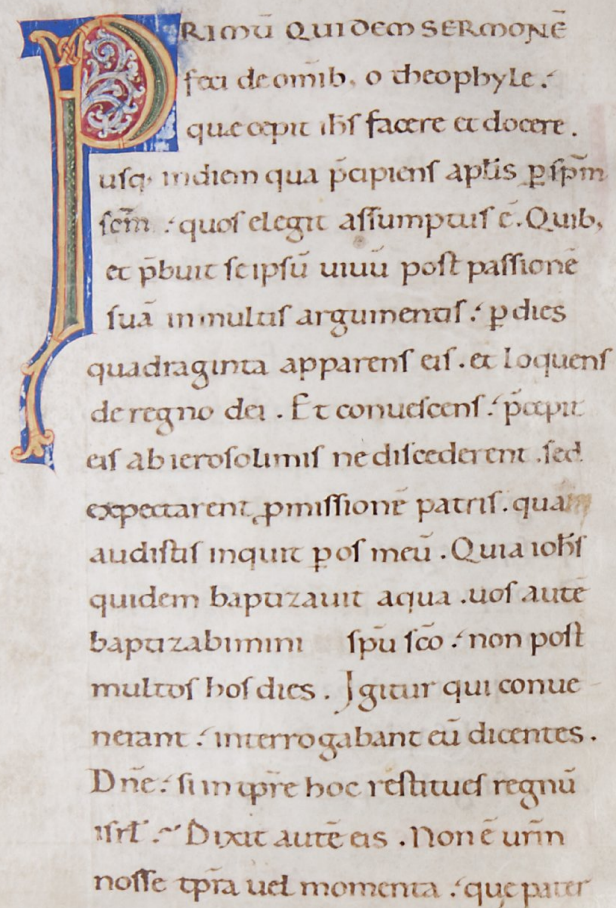 PRIMŪ QUIDEM SERMONĒ
feci de omīb, o theophyle.
que cepit ihs facere et docere.
usq; in diem qua p̄cipiens aptīs ꝑ spm̄
scm̄. quos elegit assumptus ē. Quib,
et p̄buit se ipsū uiuū post passionē
suā in multis argumentis. ꝑ dies
quadraginta apparens eis. et loquens
de regno dei. Et conuescens. p̄cepit
eis ab ierosolimis ne discederent. sed
expectarent ꝓmissionē patris. quam
audistis inquit ꝑ os meū. Quia iohs
quidem baptizauit aqua. uos autē
baptizabimini spū scō. non post
multos hos dies. Igitur qui conue
nerant. interrogabant eū dicentes.
Dn̄e. si in tp̄re hoc restitues regnū
isrl̄. Dixit autē eis. Non ē urm̄
nosse tp̄ra uel momenta. que pater